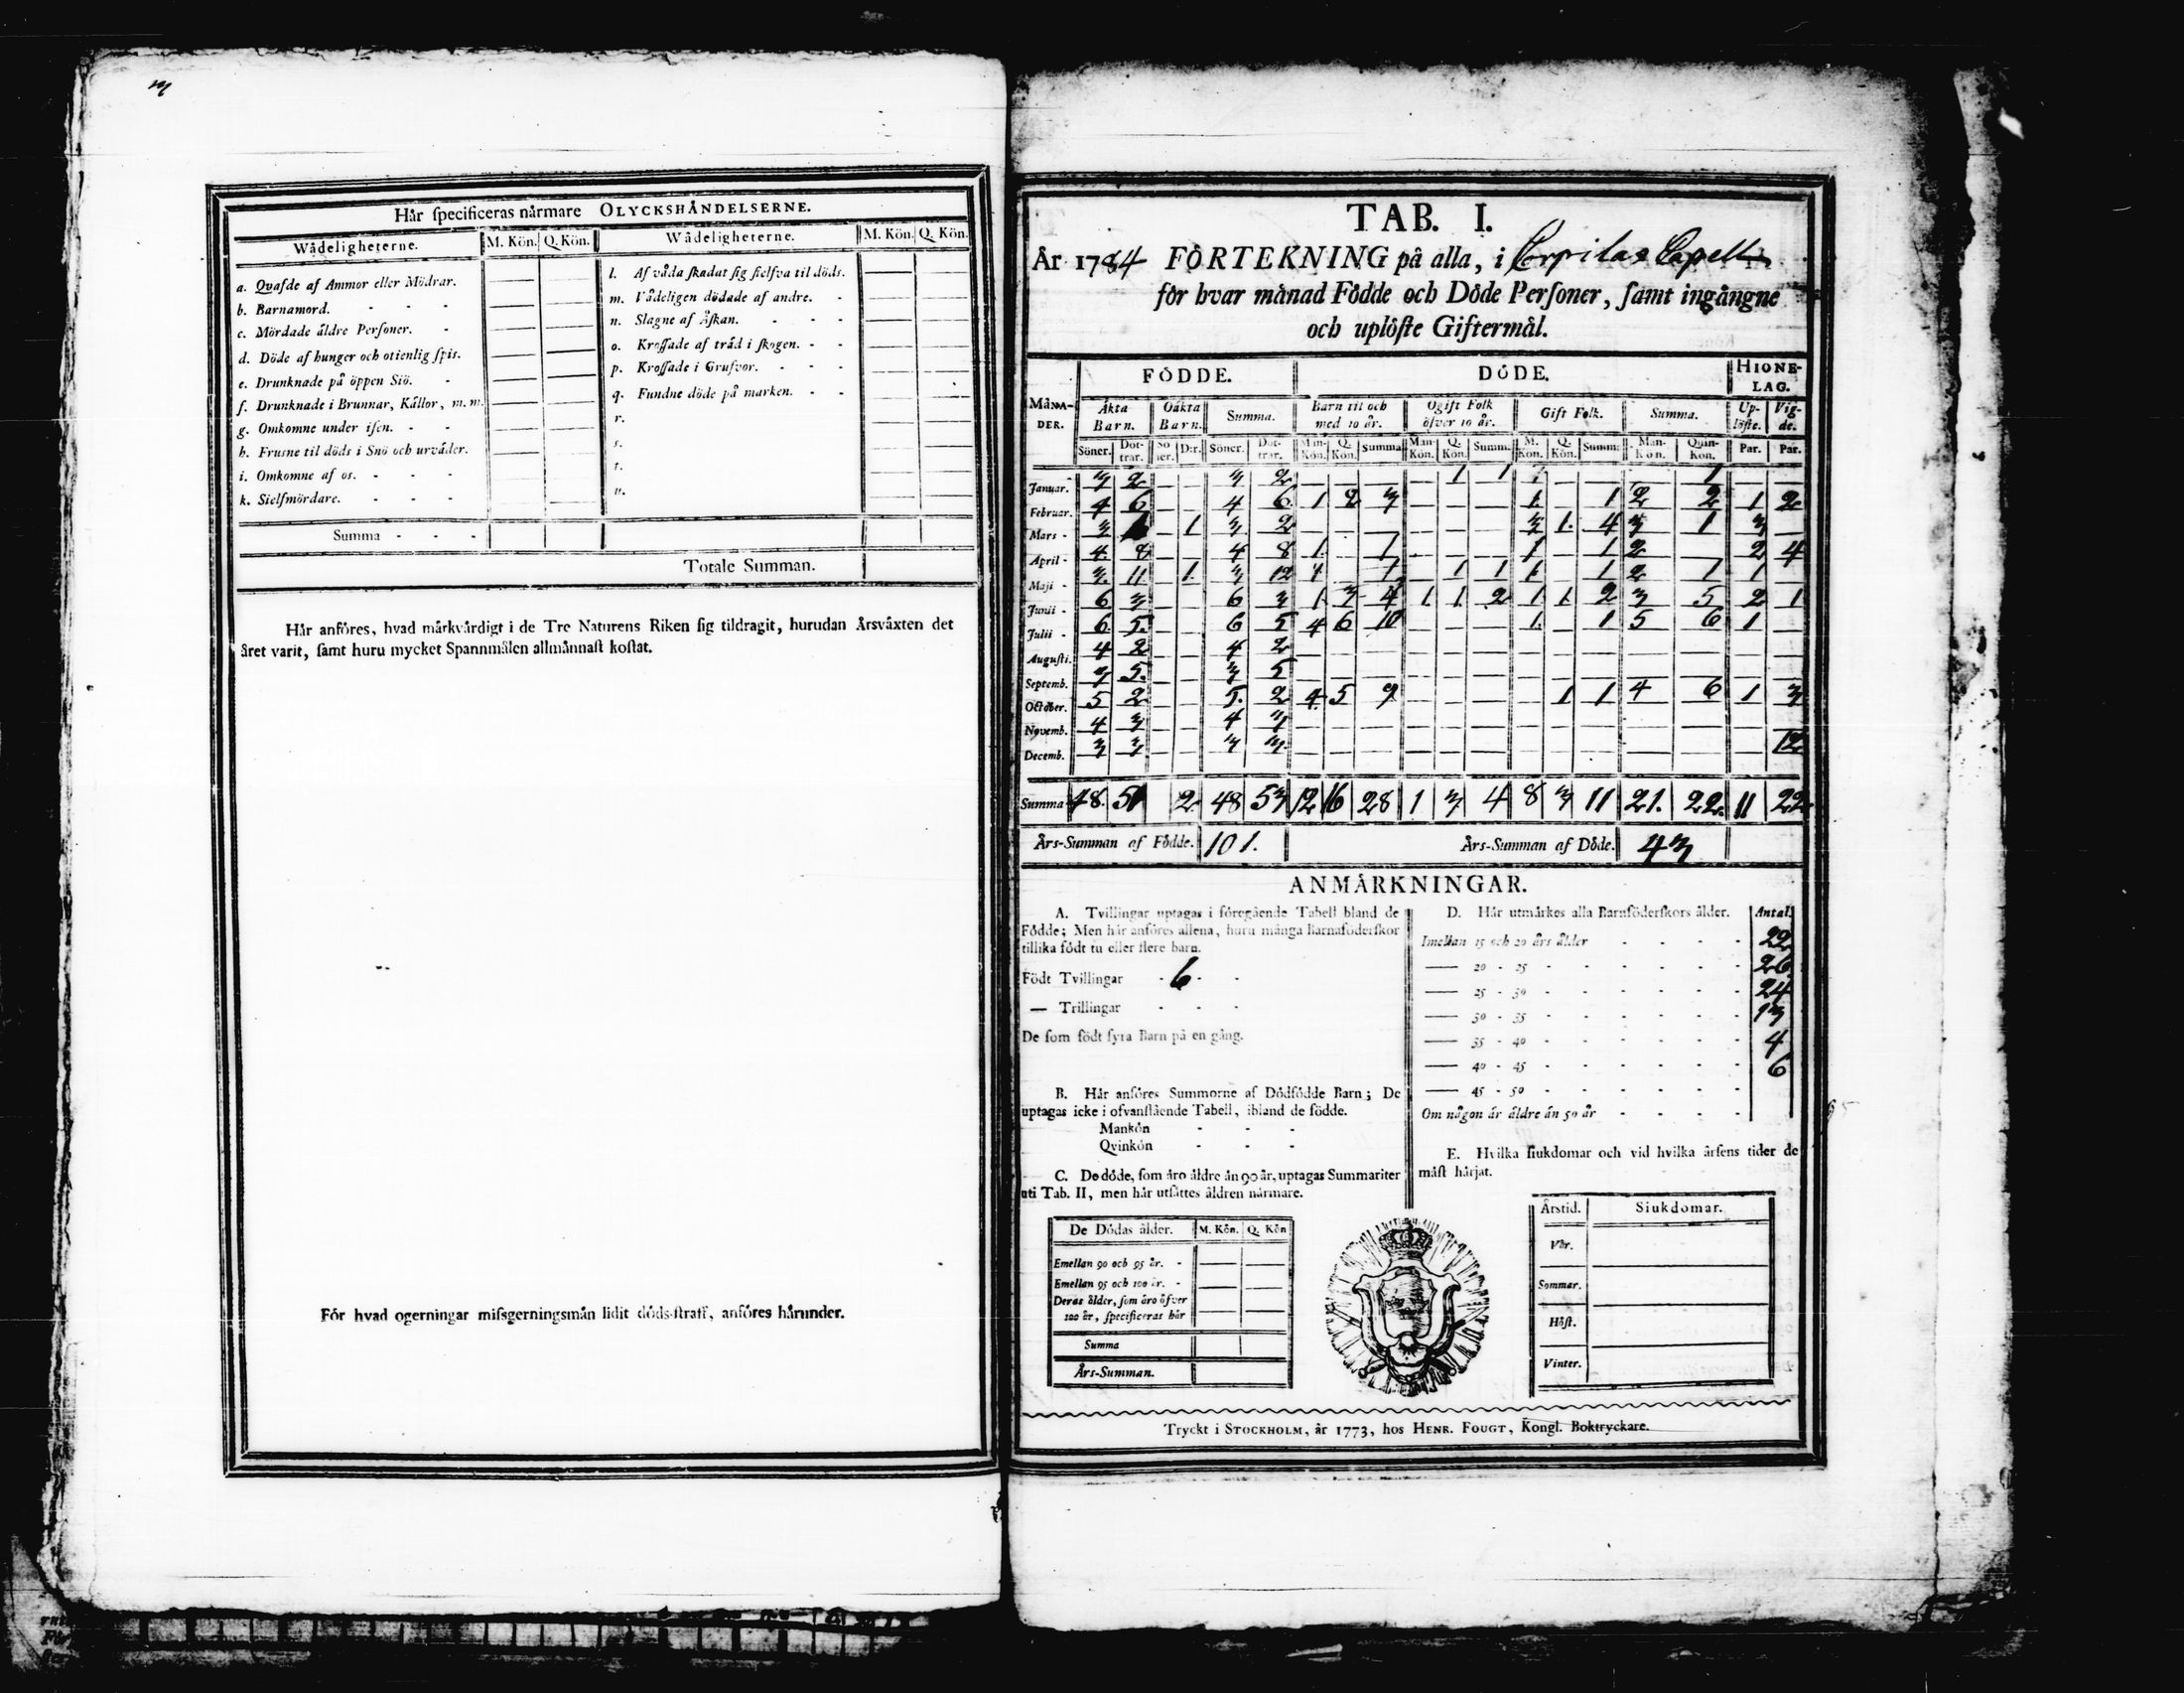 3
Här ſpecificeras närmare OLYCKSHÄNDELSERNE.
Wådeligheterne. M. Kön. Q. Kön. Wådeligheterne. M. Kön. Q. Kön.
a. Qvafde af Ammor eller Mödrar. — — l. Af våda ſkadat ſig ſielfva til döds. — —
b. Barnamord. - - - — — m. Vådeligen dödade af andre. - — —
c. Mördade äldre Perſoner. - — — n. Slagne af Åſkan. - - - — —
d. Döde af hunger och otienlig ſpis. — — o. Kroſſade af träd i ſkogen. - - — —
e. Drunknade på öppen Siö. - — — p. Kroſſade i Grufvor. - - - — —
f. Drunknade i Brunnar, Källor, m. m. — — q. Fundne döde på marken. - - — —
g. Omkomne under iſen. - - — — r.
h. Frusne til döds i Snö och urväder. — s.
i. Omkomne af os. - - - — — t.
k. Sielfmördare. - - - — — u.
Summa - - -
Totale Summan.
Här anföres, hvad märkvärdigt i de Tre Naturens Riken ſig tildragit, hurudan Årsväxten det
året varit, ſamt huru mycket Spannmålen allmännaſt koſtat.
För hvad ogerningar miſsgerningsmän lidit döds-ſtraff, anföres härunder.
TAB. I.
År 1784 FÖRTEKNING på alla, i Corpilax Capell
för hvar månad Födde och Döde Perſoner, ſamt ingångne
och uplöſte Giftermål.
MÅNA-DER. FÖDDE. DÖDE. HIONE-LAG.
Äkta Barn. Oäkta Barn. Summa. Barn til och med 10 år. Ogift Folk öfver 10 år. Gift Folk. Summa. Up-löſte. Vig-de.
Söner. Döt-trar. Sö-ner. D:r. Söner. Döt-trar. Man-Kön. Q. Kön. Summa Man-Kön. Q. Kön. Summ. M. Kön. Q. Kön. Summ. Man-Kön. Quin-Kön. Par. Par.
Januar. 3 2 — — 3 2 — — — — 1 1 — — — 1 — —
Februar. 4 6 — — 4 6 1 2 3 — — — 1 — 1 2 2 1 2
Mars - 3 1 — 1 3 2 — — — — — — 3 1 4 3 1 3 —
April - 4 8 — — 4 8 1 — 1 — — — 1 — 1 2 — 2 4
Maji - 3 11 — 1 3 12 1 — 1 — 1 1 1 — 1 2 1 1 —
Junii - 6 3 — — 6 3 1 3 4 1 1 2 1 1 2 3 5 2 1
Julii - 6 5 — — 6 5 4 6 10 — — — 1 — 1 5 6 1 —
Auguſti. 4 2 — — 4 2 — — — — — — — — — — — — —
Septemb. 3 5 — — 3 5 — — — — — — — — — — — — —
October. 5 2 — — 5 2 4 5 9 — — — 1 1 4 6 1 3
Novemb. 4 3 — — 4 3 — — — — — — — — — — — — —
Decemb. 3 3 — — 3 3 — — — — — — — — — — — — 12
Summa 48. 51 2 48 53 12 16 28 1 3 4 8 3 11 21. 22. 11 22
Års-Summan af Födde. 101. Års-Summan af Döde. 43
ANMÄRKNINGAR.
A. Tvillingar uptagas i föregående Tabell bland de
Födde; Men här anföres allena, huru många Barnaföderſkor
tillika födt tu eller flere barn.
Födt Tvillingar - 6 - -
— Trillingar - - -
De ſom födt fyra Barn på en gång.
B. Här anföres Summorne af Dödfödde Barn; De
uptagas icke i ofvanſtående Tabell, ibland de födde.
Mankön - - -
Qvinkön - - -
C. De döde, ſom äro äldre än 90 år, uptagas Summariter
uti Tab. II, men här utſättes åldren närmare.
De Dödas ålder. M. Kön. Q. Kön
Emellan 90 och 95 år. - — —
Emellan 95 och 100 år. - — —
Deras ålder, ſom äro öfver
100 år, ſpecificeras här — —
Summa
Års-Summan.
D. Här utmärkes alla Barnföderſkors ålder. Antal.
Imellan 15 och 20 års ålder - - - - 22
— 20 - 25 - - - - - - 26
— 25 - 30 - - - - - - 24
— 30 - 35 - - - - - - 13
— 35 - 40 - - - - - - 4
— 40 - 45 - - - - - - 6
— 45 - 50 - - - - - -
Om någon är äldre än 50 år - - - -
E. Hvilka ſiukdomar och vid hvilka årſens tider de
måſt härjat.
Årstid. Siukdomar.
Vår.
Sommar.
Höſt.
Vinter.
Tryckt i STOCKHOLM, år 1773, hos HENR. FOUGT, Kongl. Boktryckare.